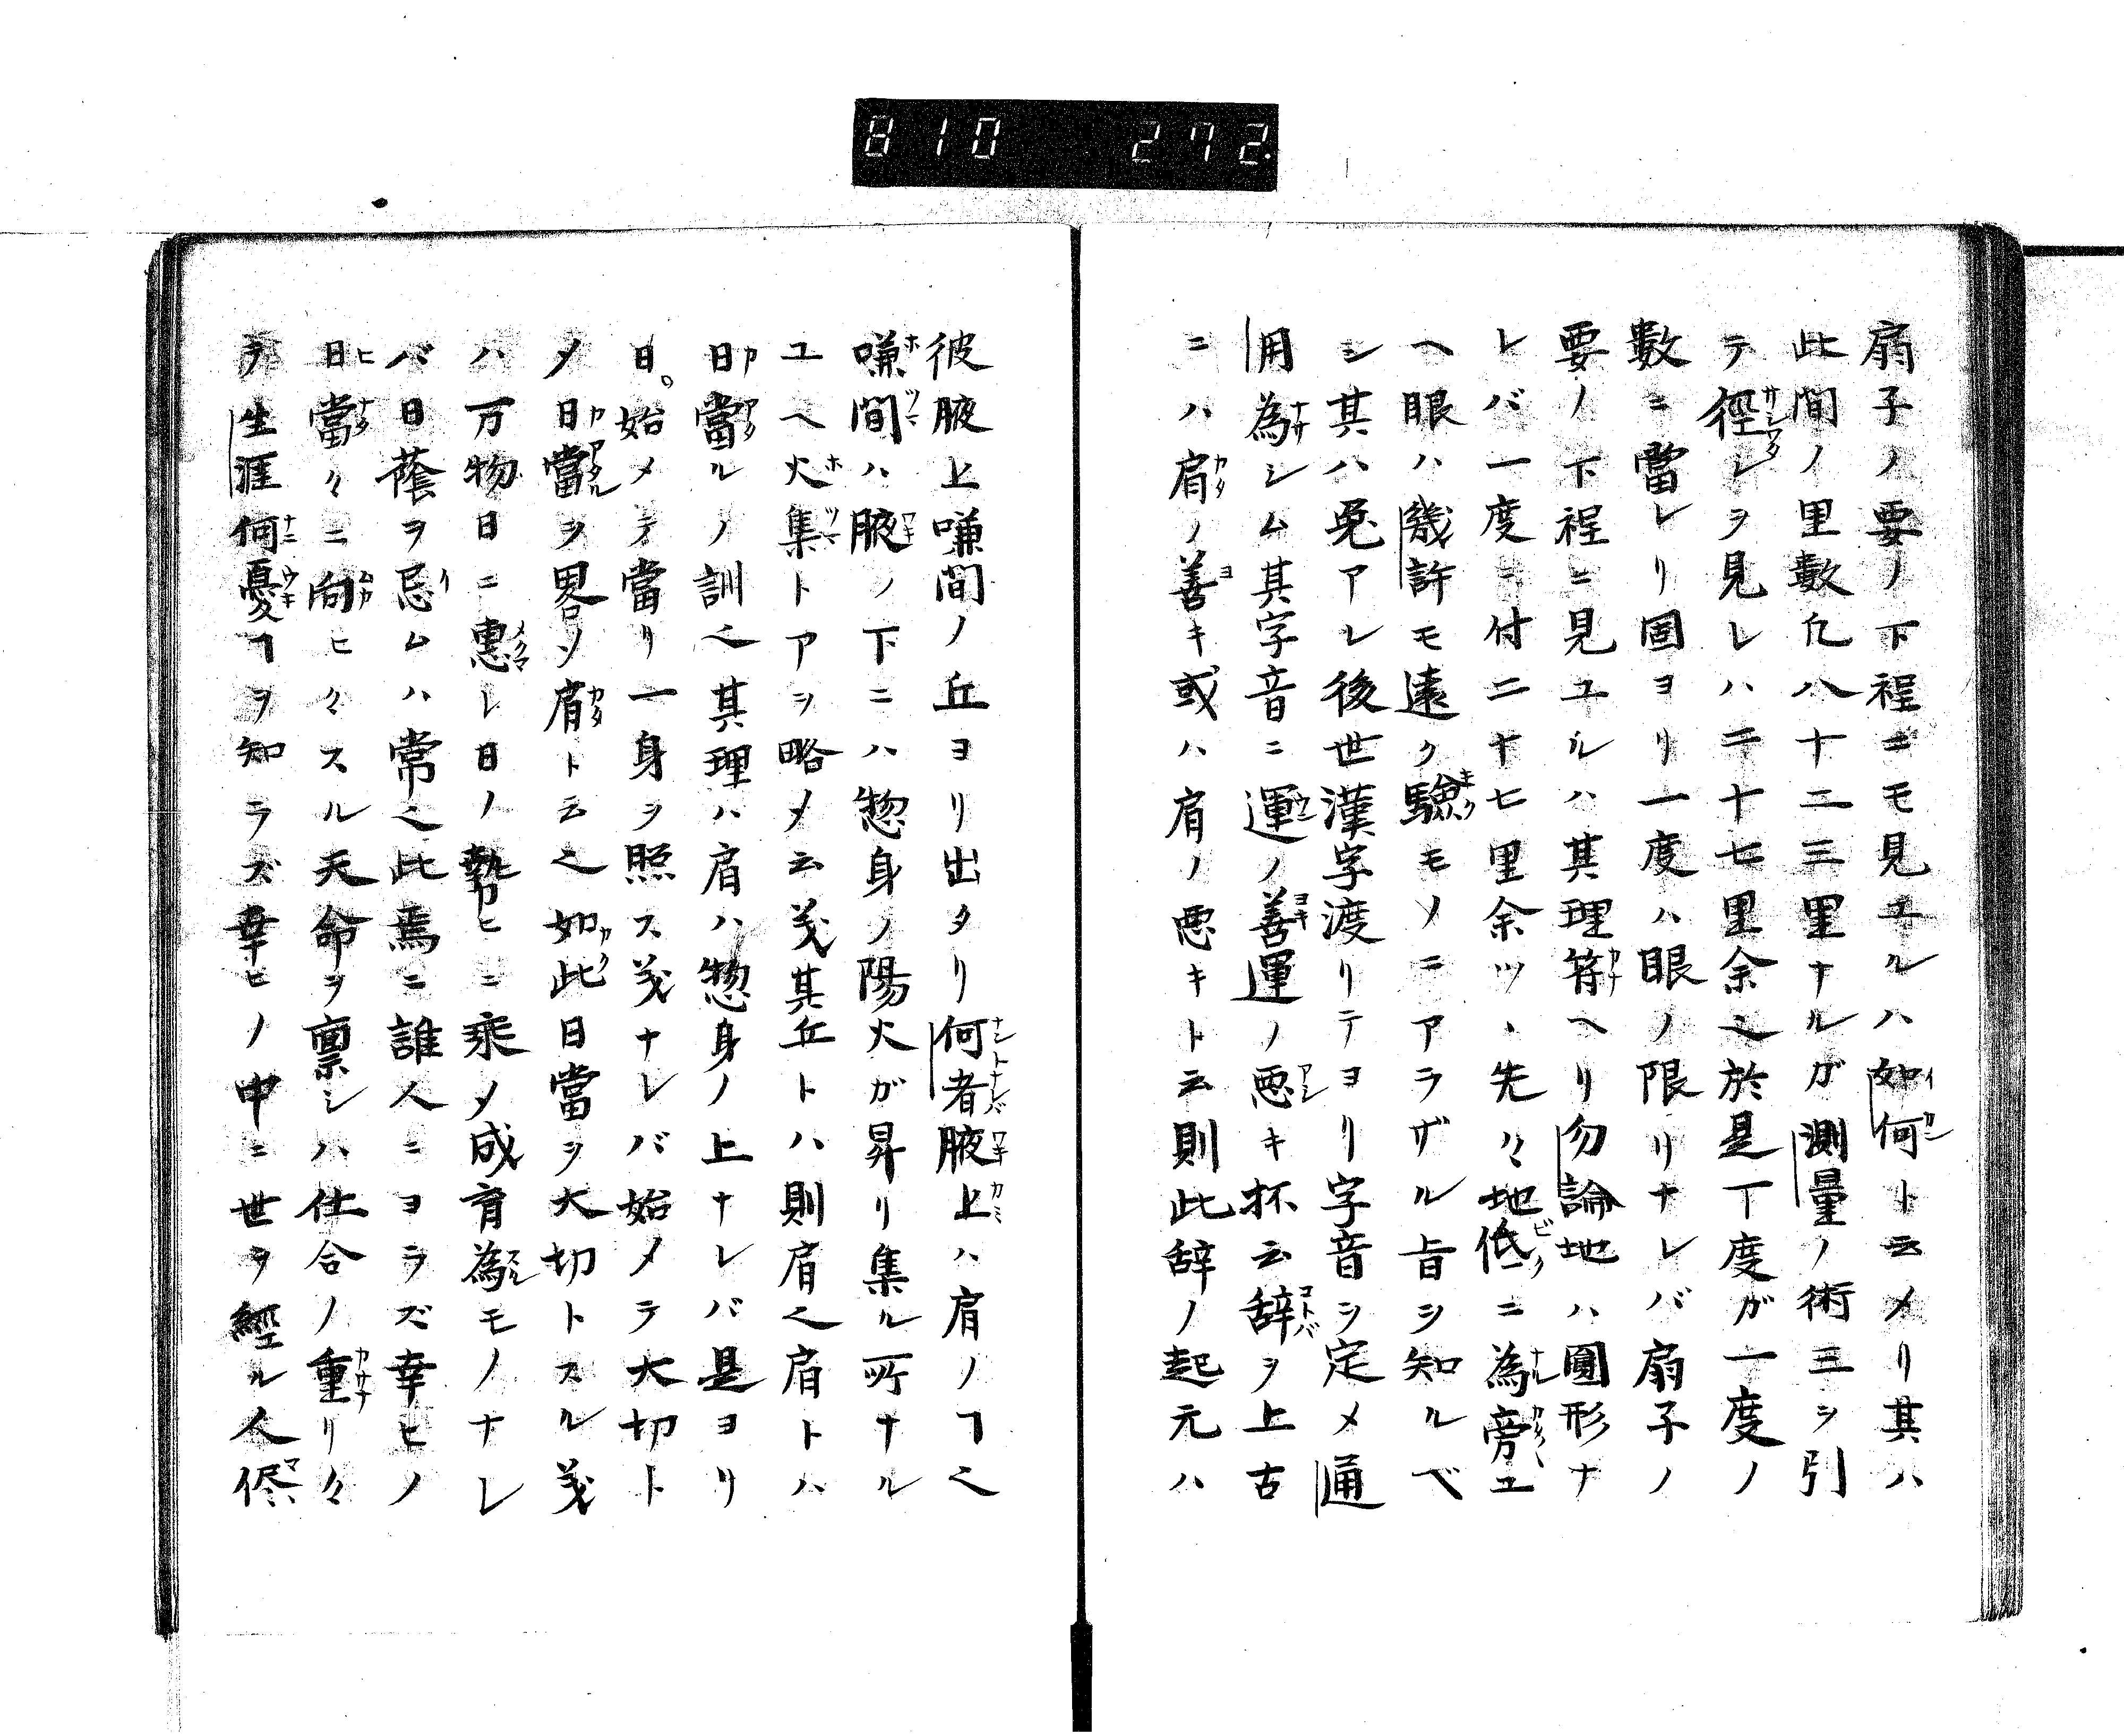 810 272
扇子ノ要ノ下程ニモ見ユルハ如何ト云メリ其ハ
此間ノ里數凢八十二三里ナルガ測量ノ術三ヲ引
テ徑シヲ見レハ二十七里余之於是丁度ガ一度ノ
數ニ當レリ固ヨリ一度ハ眼ノ限リナレバ扇子ノ
要ノ下程ニ見ユルハ其理符ヘリ勿論地ハ圓形ナ
レバ一度ニ付二十七里余ツヽ先々地低ニ為旁ユ
ヘ眼ハ幾許モ遠ク驗モメノニアラザル旨ヲ知ルベ
シ其ハ兎アレ後世漢字渡リテヨリ字音ヲ定メ通
用為シム其字音ニ運ノ善運ノ悪キ抔云辞ヲ上古
ニハ肩ノ善キ或ハ肩ノ悪キト云則此辞ノ起元ハ
彼腋上嗛間ノ丘ヨリ出タリ何者腋上ハ肩ノヿ之
嗛間ハ腋ノ下ニハ惣身ノ陽火ガ昇リ集ル所ナル
ユヘ火集トアヲ略メ云義其丘トハ則肩之肩トハ
日當ルノ訓之其理ハ肩ハ惣身ノ上ナレバ是ヨリ
日。始メテ當リ一身ヲ照ス義ナレバ始メテ大切ト
メ日當ヲ畧メ肩ト云之如此日當ヲ大切トスル義
ハ万物日ニ惠レ日ノ勢ヒニ乘メ成育為モノナレ
バ日蔭ヲ忌ムハ常之此焉ニ誰人ニヨラズ幸ヒノ
日當々ニ向ヒ々スル天命ヲ禀シハ仕合ノ重リ々
テ生涯何憂ヿヲ知ラズ幸ヒノ中ニ世ヲ經ル人侭